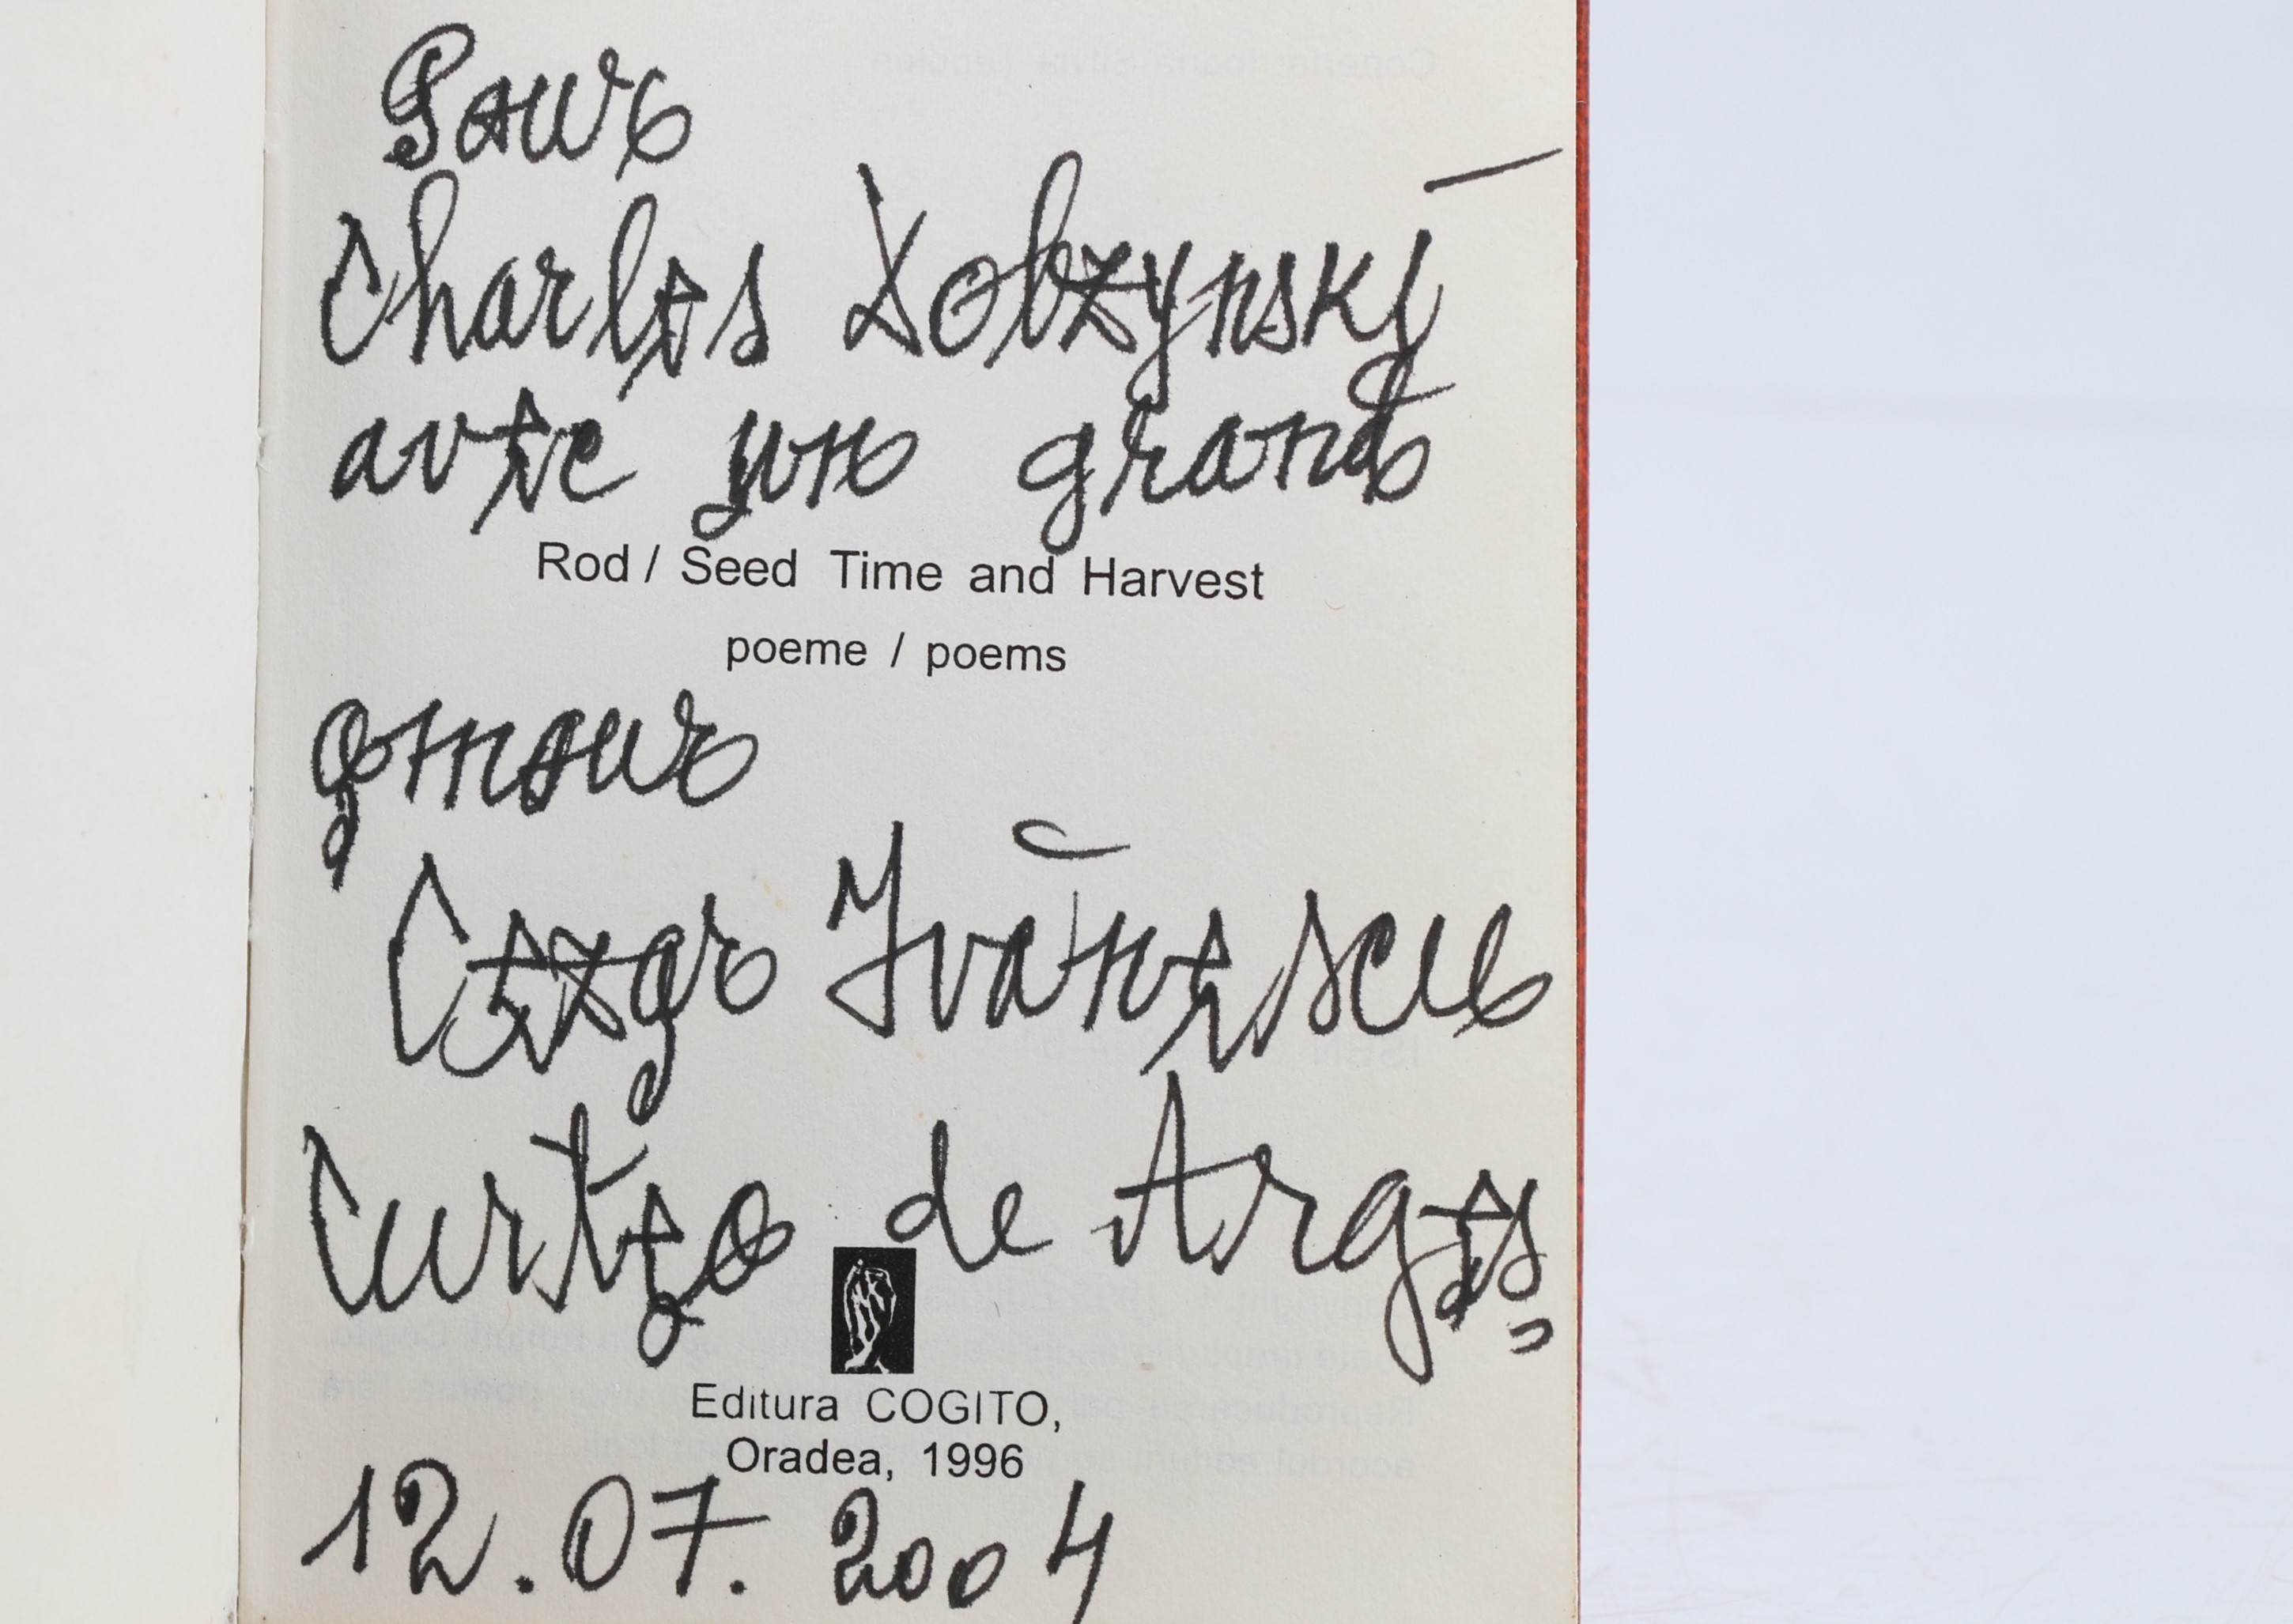 Pour
Charles Dobzynski
avec un grand
Rod / Seed Time and Harvest
poeme / poems
amour
Cezar Ivănescu
Curtea de Argeș
Editura COGITO,
Oradea, 1996
12.07.2004